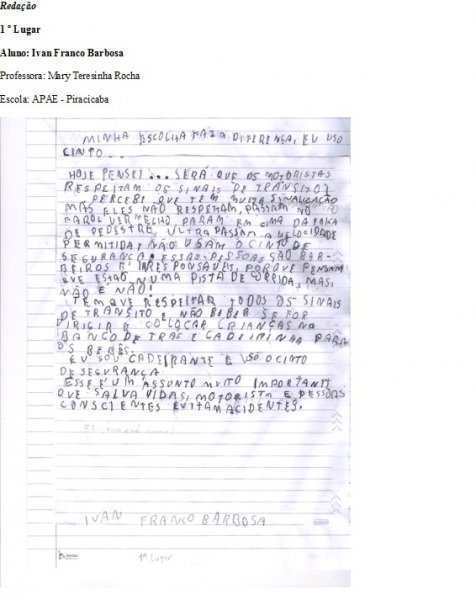 Redação
1 ° Lugar
Aluno: Ivan Franco Barbosa
Professora: Mary Teresinha Rocha
Escola: APAE - Piracicaba
MINHA ESCOLHA FAZ A DIFERENÇA, EU USO
CINTO...
HOJE PENSEI... SERÁ QUE OS MOTORISTAS
RESPEITAM OS SINAIS DE TRÂNSITO?
PERCEBI QUE TEM MUITA SINALIZAÇÃO
MAS ELES NÃO RESPEITAM, PASSAM NO
FAROL VERMELHO PARAM EM CIMA DA FAIXA
DE PEDESTRE, ULTRAPASSAM A VELOCIDADE
PERMITIDA, NÃO USAM O CINTO DE
SEGURANÇA. ESSAS PESSOAS SÃO BAR-
BEIROS E IRRESPONSÁVEIS, PORQUE PENSAM
QUE ESTÃO NUMA PISTA DE CORRIDA, MAS,
NÃO É NÃO!
TEM QUE RESPEITAR TODOS OS SINAIS
DE TRÂNSITO E NÃO BEBER SE FOR
DIRIGIR E COLOCAR CRIANÇAS NO
BANCO DE TRÁS E CADEIRINHA PARA
OS BEBÊS.
EU SOU CADEIRANTE E USO O CINTO
DE SEGURANÇA
ESSE É UM ASSUNTO MUITO IMPORTANTE
QUE SALVA VIDAS, MOTORISTA E PESSOAS
CONSCIENTES EVITAM ACIDENTES.
IVAN FRANCO BARBOSA
1º Lugar